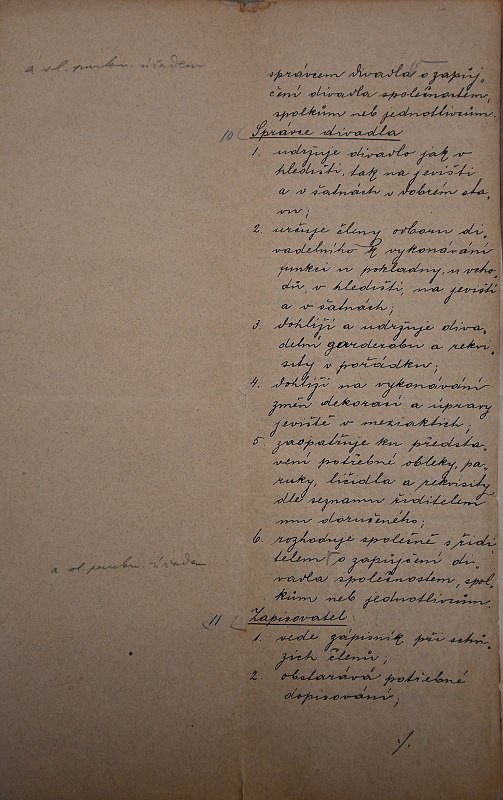 správcem divadla o zapůj-
čení divadla společnostem,
spolkům neb jednotlivcům.
10 Správce divadla
1. udržuje divadlo jak v
hledišti, tak na jevišti
a v šatnách v dobrém sta-
vu;
2. určuje členy odboru di-
vadelního k vykonávání
funkcí u pokladny, u vcho-
dů, v hledišti, na jevišti
a v šatnách;
3. dohlíží a udržuje diva-
delní garderobu a rekvi-
sity v pořádku;
4. dohlíží na vykonávání
změn dekorací a úpravy
jeviště v meziaktích;
5. zaopatřuje ku předsta-
vení potřebné obleky, pa-
ruky, líčidla a rekvisity
dle seznamu ředitelem
mu doručeného;
6. rozhoduje společně s řidi
telem o zapůjčení di-
vadla společnostem, spol-
kům neb jednotlivcům.
11 Zapisovatel:
1. vede zápisník při schů-
zích členů;
2. obstarává potřebné
dopisování;
./.